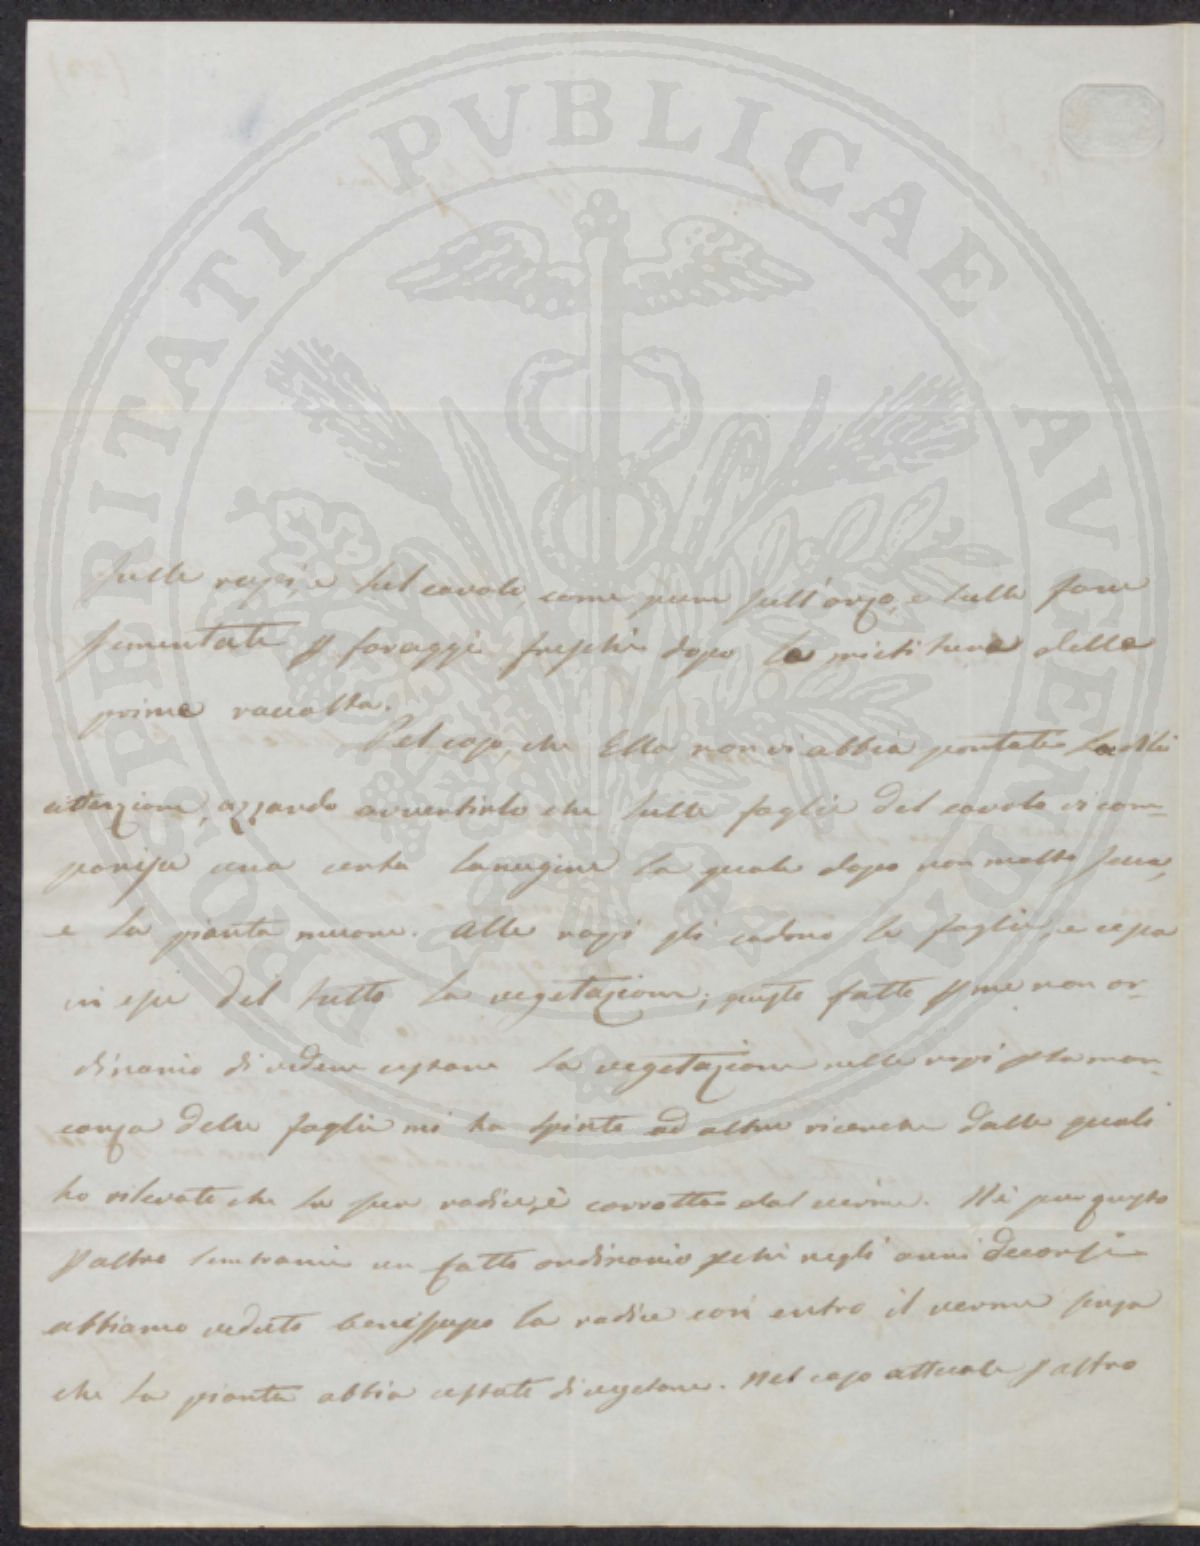 PROSPERITATI PVBLICAE AVGENDAE
sulle rape, e sul cavolo, come pure sull'orzo, e sulle fave
sementate p foraggi freschi dopo la mietitura della
prima raccolta.
Pel caso, che Ella non vi abbia portati
attenzione, azzardo avvertirlo che sulle foglie del cavolo vi com-
parisce una certa lanugine la quale dopo non molto secca,
e la pianta muore. Alle rape gli cadono le foglie, e cessa
in esse del tutto la vegetazione; questo fatto p me non or-
dinario di vedere cessare la vegetazione nelle rape p la man-
canza delle foglie mi ha spinto ad altre ricerche dalle quali
ho rilevato che la sua radice, è corrotta dal verme. Nè pur questo
p altro sembrami un fatto ordinario pchè negli anni decorsi
abbiamo veduto benissimo la radice con entro il verme senza
che la pianta abbia cessato di vegetare. Nel caso attuale p altro